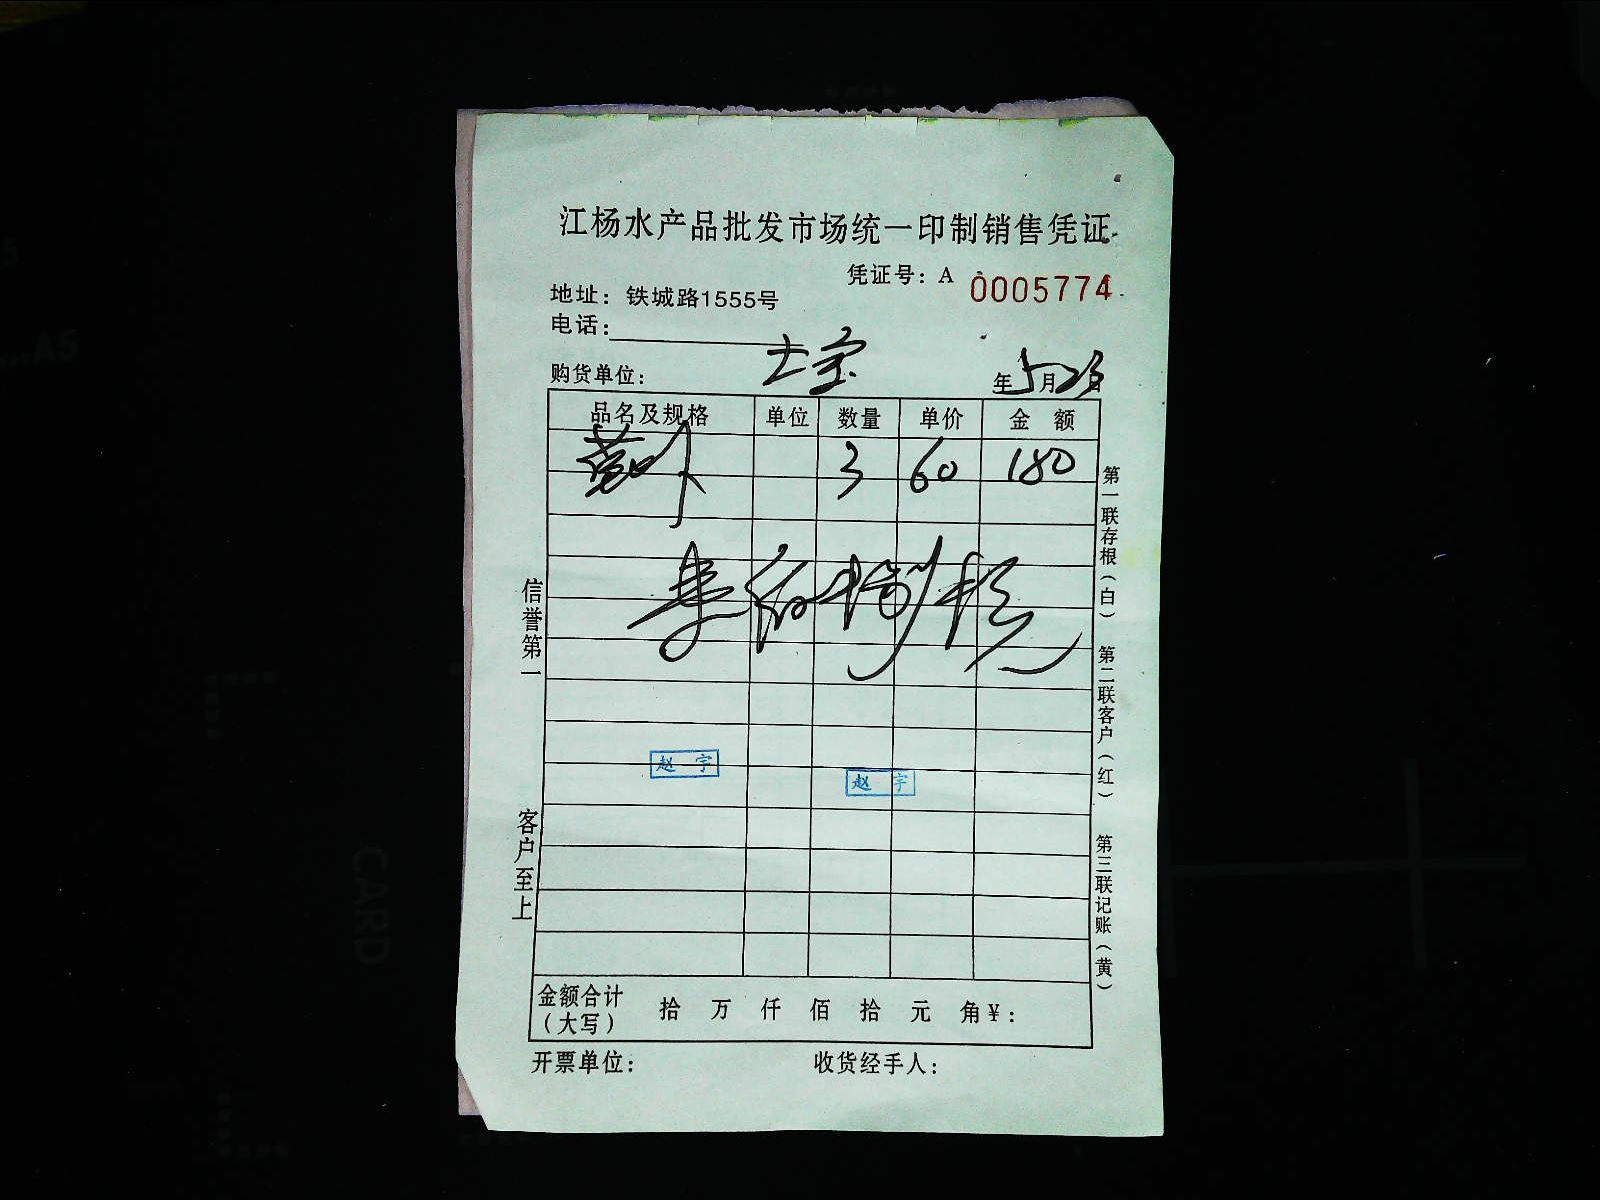 江杨水产品批发市场统一印制销售凭证
凭证号：A 0005774
地址：铁城路1555号
电话：
购货单位：
年5月23日
品名及规格 单位 数量 单价 金 额
3 60 180
信誉第一
客户至上
第一联存根（白） 第二联客户（红） 第三联记账（黄）
赵 宇
赵 宇
金额合计（大写） 拾 万 仟 佰 拾 元 角 ¥：
开票单位： 收货经手人：
CARD
A5